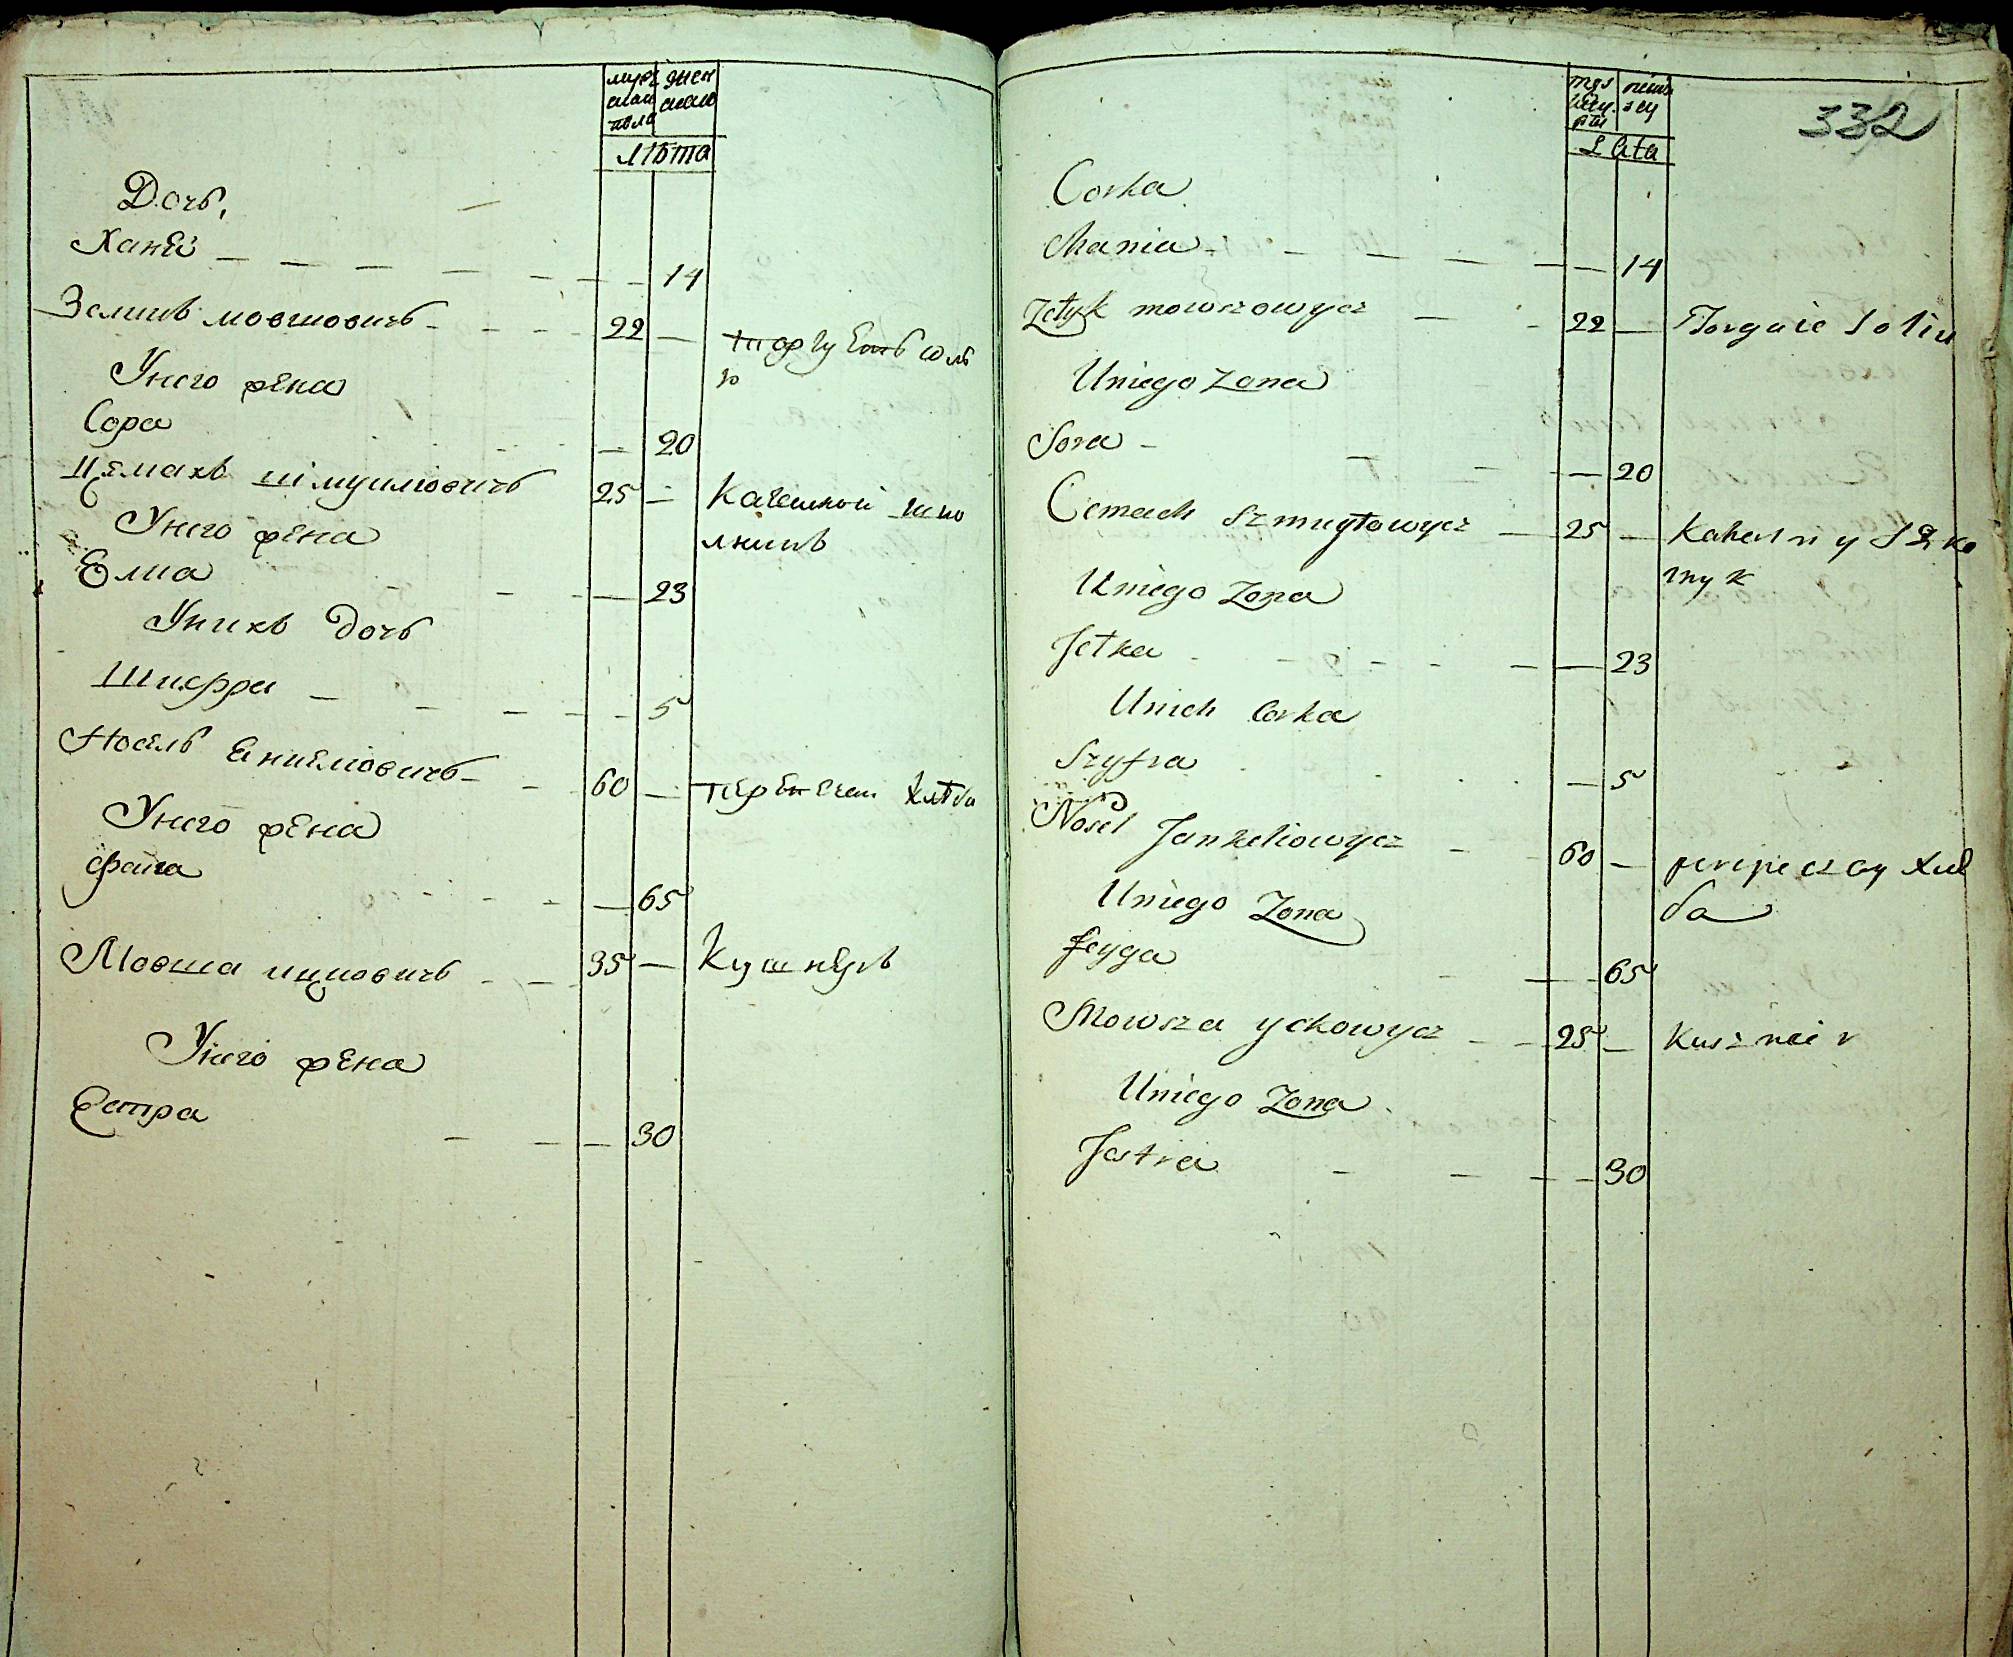 муж
ска
пола
жен
скаго
лѣта
Дочь,
Ханя 14
Зеликъ мовшовичъ 22 — торгуетъ соль
ю
Унего жена
Сора — 20
Цемахъ шмуиловичъ 25 — Кагалной шко
лникъ
Унего жена
Елка — 23
Унихъ дочь
Шифра 5
Носель Янкелювичъ 60 — перепечай хлѣба
Унего жена
Фейга — 65
Мовша ицковичъ 35 — Кушнеръ
Унего жена
Естра — 30
332
Lata
Corka
Chania — 14
Zelyk mowszowycz 22 — Torguie Soliu
Uniego Zona
Sora — 20
Cemach Szmuylowycz — 25 — Kahalny Szko
lnyk
Uniego Zona
Jelka — 23
Unich Corka
Szyfra — 5
Nosel Jankeliowycz 60 — perepeczay Chli
ba
Uniego Zona
feyga — 65
Mowsza yckowycz 25 — Kusznier
Uniego Zona
Jestra — 30